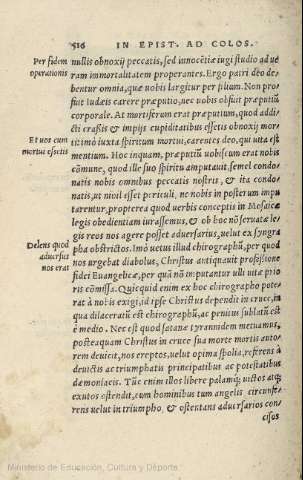 516 IN EPIST. AD COLOS.
Per fidem
operationis
nullis obnoxij peccatis, sed innocētiæ iugi studio ad ue
ram immortalitatem properantes. Ergo patri deo de-
bentur omnia, quæ nobis largitur per filium. Non pro-
fuit Iudæis carere præputio, nec uobis obfuit præputiū
corporale. At mortiferum erat præputium, quod addi-
Et uos cum
mortui essetis
cti crassis & impijs cupiditatibus essetis obnoxij mor-
ti: imò iuxta spiritum mortui, carentes deo, qui uita est
mentium. Hoc inquam, præputiū uobiscum erat nobis
cōmune, quod ille suo spiritu amputauit, semel condo-
natis nobis omnibus peccatis nostris, & ita condo-
natis, ut nihil esset periculi, ne nobis in posterum impu
tarentur, propterea quod uerbis conceptis in Mosaicæ
legis obedientiam iurassemus, & ob hoc nō seruatæ le-
gis reos nos agere posset aduersarius, uelut ex syngra
Delens quod
aduersus
nos erat
pha obstrictos. Imò uetus illud chirographū, per quod
nos urgebat diabolus, Christus antiquauit professione
fidei Euangelicæ, per quā nō imputantur ulli uitæ prio
ris cōmissa. Quicquid enim ex hoc chirographo pote-
rat à nobis exigi, id ipse Christus dependit in cruce, in
qua dilaceratū est chirographū, ac penitus sublatū est
è medio. Nec est quod satanæ tyrannidem metuamus,
posteaquam Christus in cruce sua morte mortis auto-
rem deuicit, nos ereptos, uelut opima spolia, referens à
deuictis ac triumphatis principatibus ac potestatibus
dæmoniacis. Tūc enim illos libere palamq; uictos atq;
exutos ostendit, cum hominibus tum angelis circunfe-
rens uelut in triumpho, & ostentans aduersarios con-
cisos
Ministerio de Educación, Cultura y Deporte